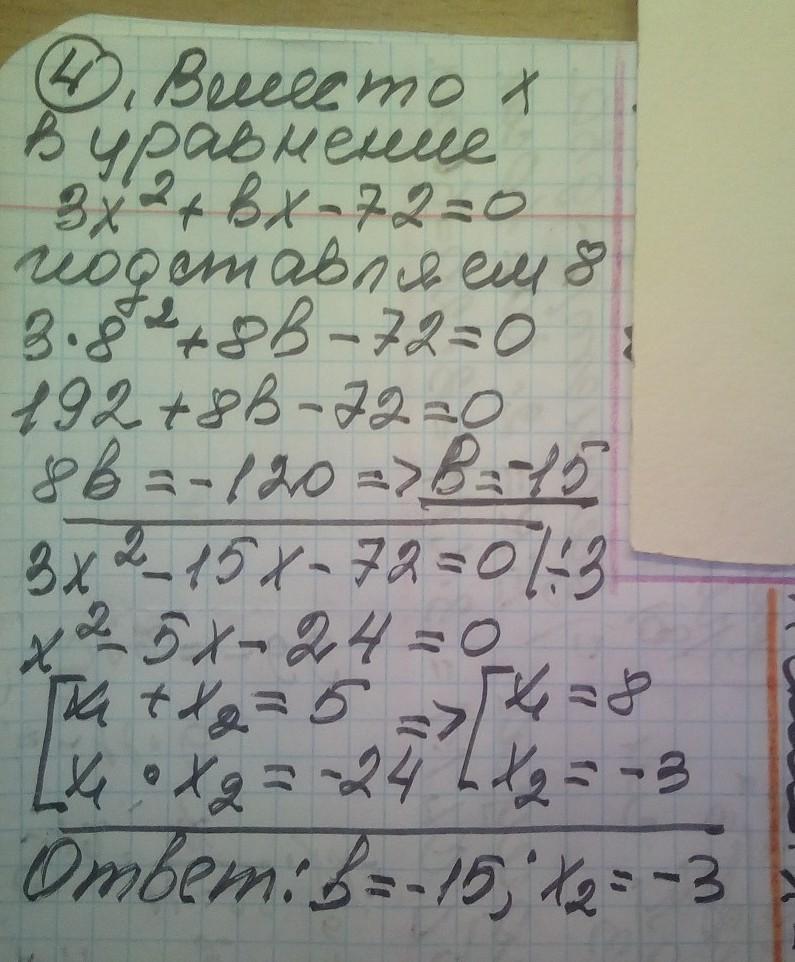 4. Вместо x
в уравнение
3x² + вx - 72 = 0
подставляем 8
3·8² + 8в - 72 = 0
192 + 8в - 72 = 0
8в = -120 => в = -15
3x² - 15x - 72 = 0 |÷3
x² - 5x - 24 = 0
[x₁ + x₂ = 5 => [x₁ = 8
x₁ · x₂ = -24 x₂ = -3
Ответ: в = -15; x₂ = -3